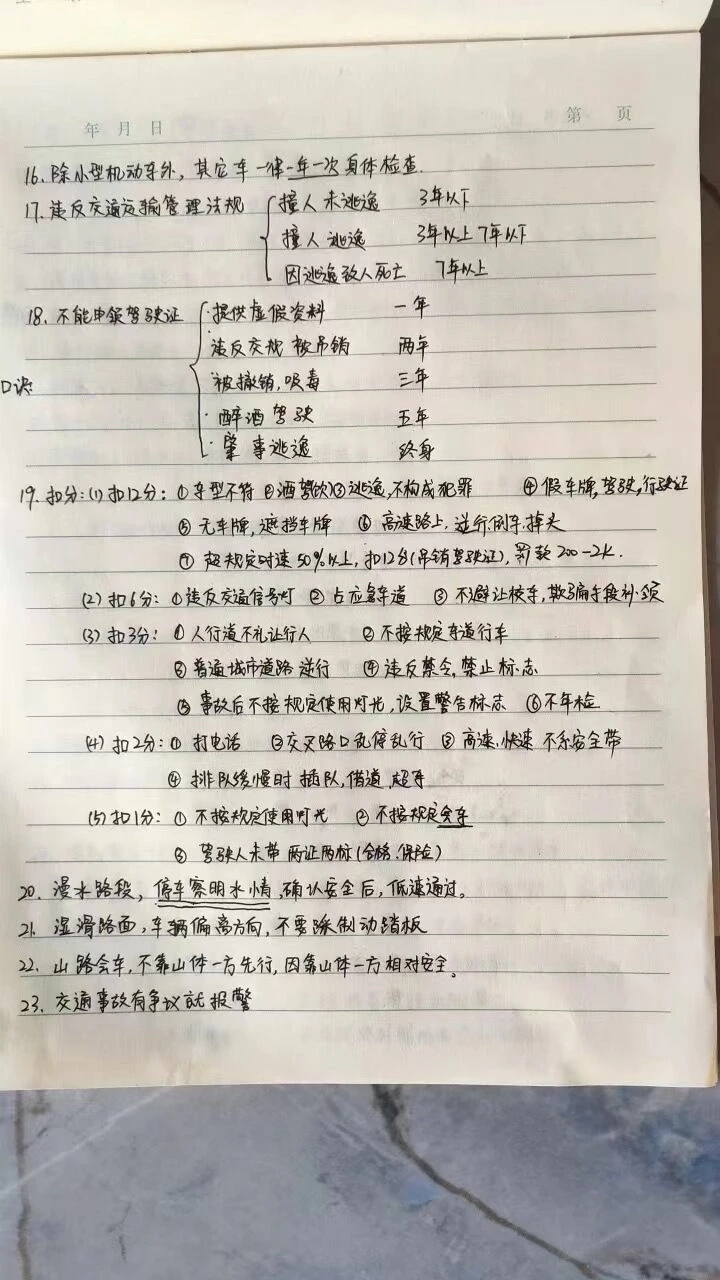 年 月 日 第 页
16. 除小型机动车外，其它车一律一年一次身体检查.
17. 违反交通运输管理法规 撞人未逃逸 3年以下
撞人逃逸 3年以上7年以下
因逃逸致人死亡 7年以上
18. 不能申领驾驶证 提供虚假资料 一年
违反交规 被吊销 两年
口诀: 被撤销,吸毒 三年
醉酒驾驶 五年
肇事逃逸 终身
19. 扣分: (1) 扣12分: ①车型不符 ②酒驾(饮) ③逃逸,不构成犯罪 ④假车牌,驾驶,行驶证
⑤ 无车牌,遮挡车牌 ⑥ 高速路上,逆行,倒车,掉头
⑦ 超规定时速50%以上,扣12分(吊销驾驶证),罚款200-2k.
(2) 扣6分: ①违反交通信号灯 ② 占应急车道 ③ 不避让校车,欺骗手段补领
(3) 扣3分: ① 人行道不礼让行人 ② 不按规定车道行车
③ 普通城市道路逆行 ④ 违反禁令,禁止标志
⑤ 事故后不按规定使用灯光,设置警告标志 ⑥不年检
(4) 扣2分: ① 打电话 ②交叉路口乱停乱行 ③ 高速,快速 不系安全带
④ 排队缓慢时 插队,借道,超车
(5) 扣1分: ① 不按规定使用灯光 ② 不按规定会车
③ 驾驶人未带两证两标(合格.保险)
20. 漫水路段，停车察明水情,确认安全后，低速通过。
21. 湿滑路面，车辆偏离方向，不要踩制动踏板
22. 山路会车,不靠山体一方先行,因靠山体一方相对安全。
23. 交通事故有争议就报警